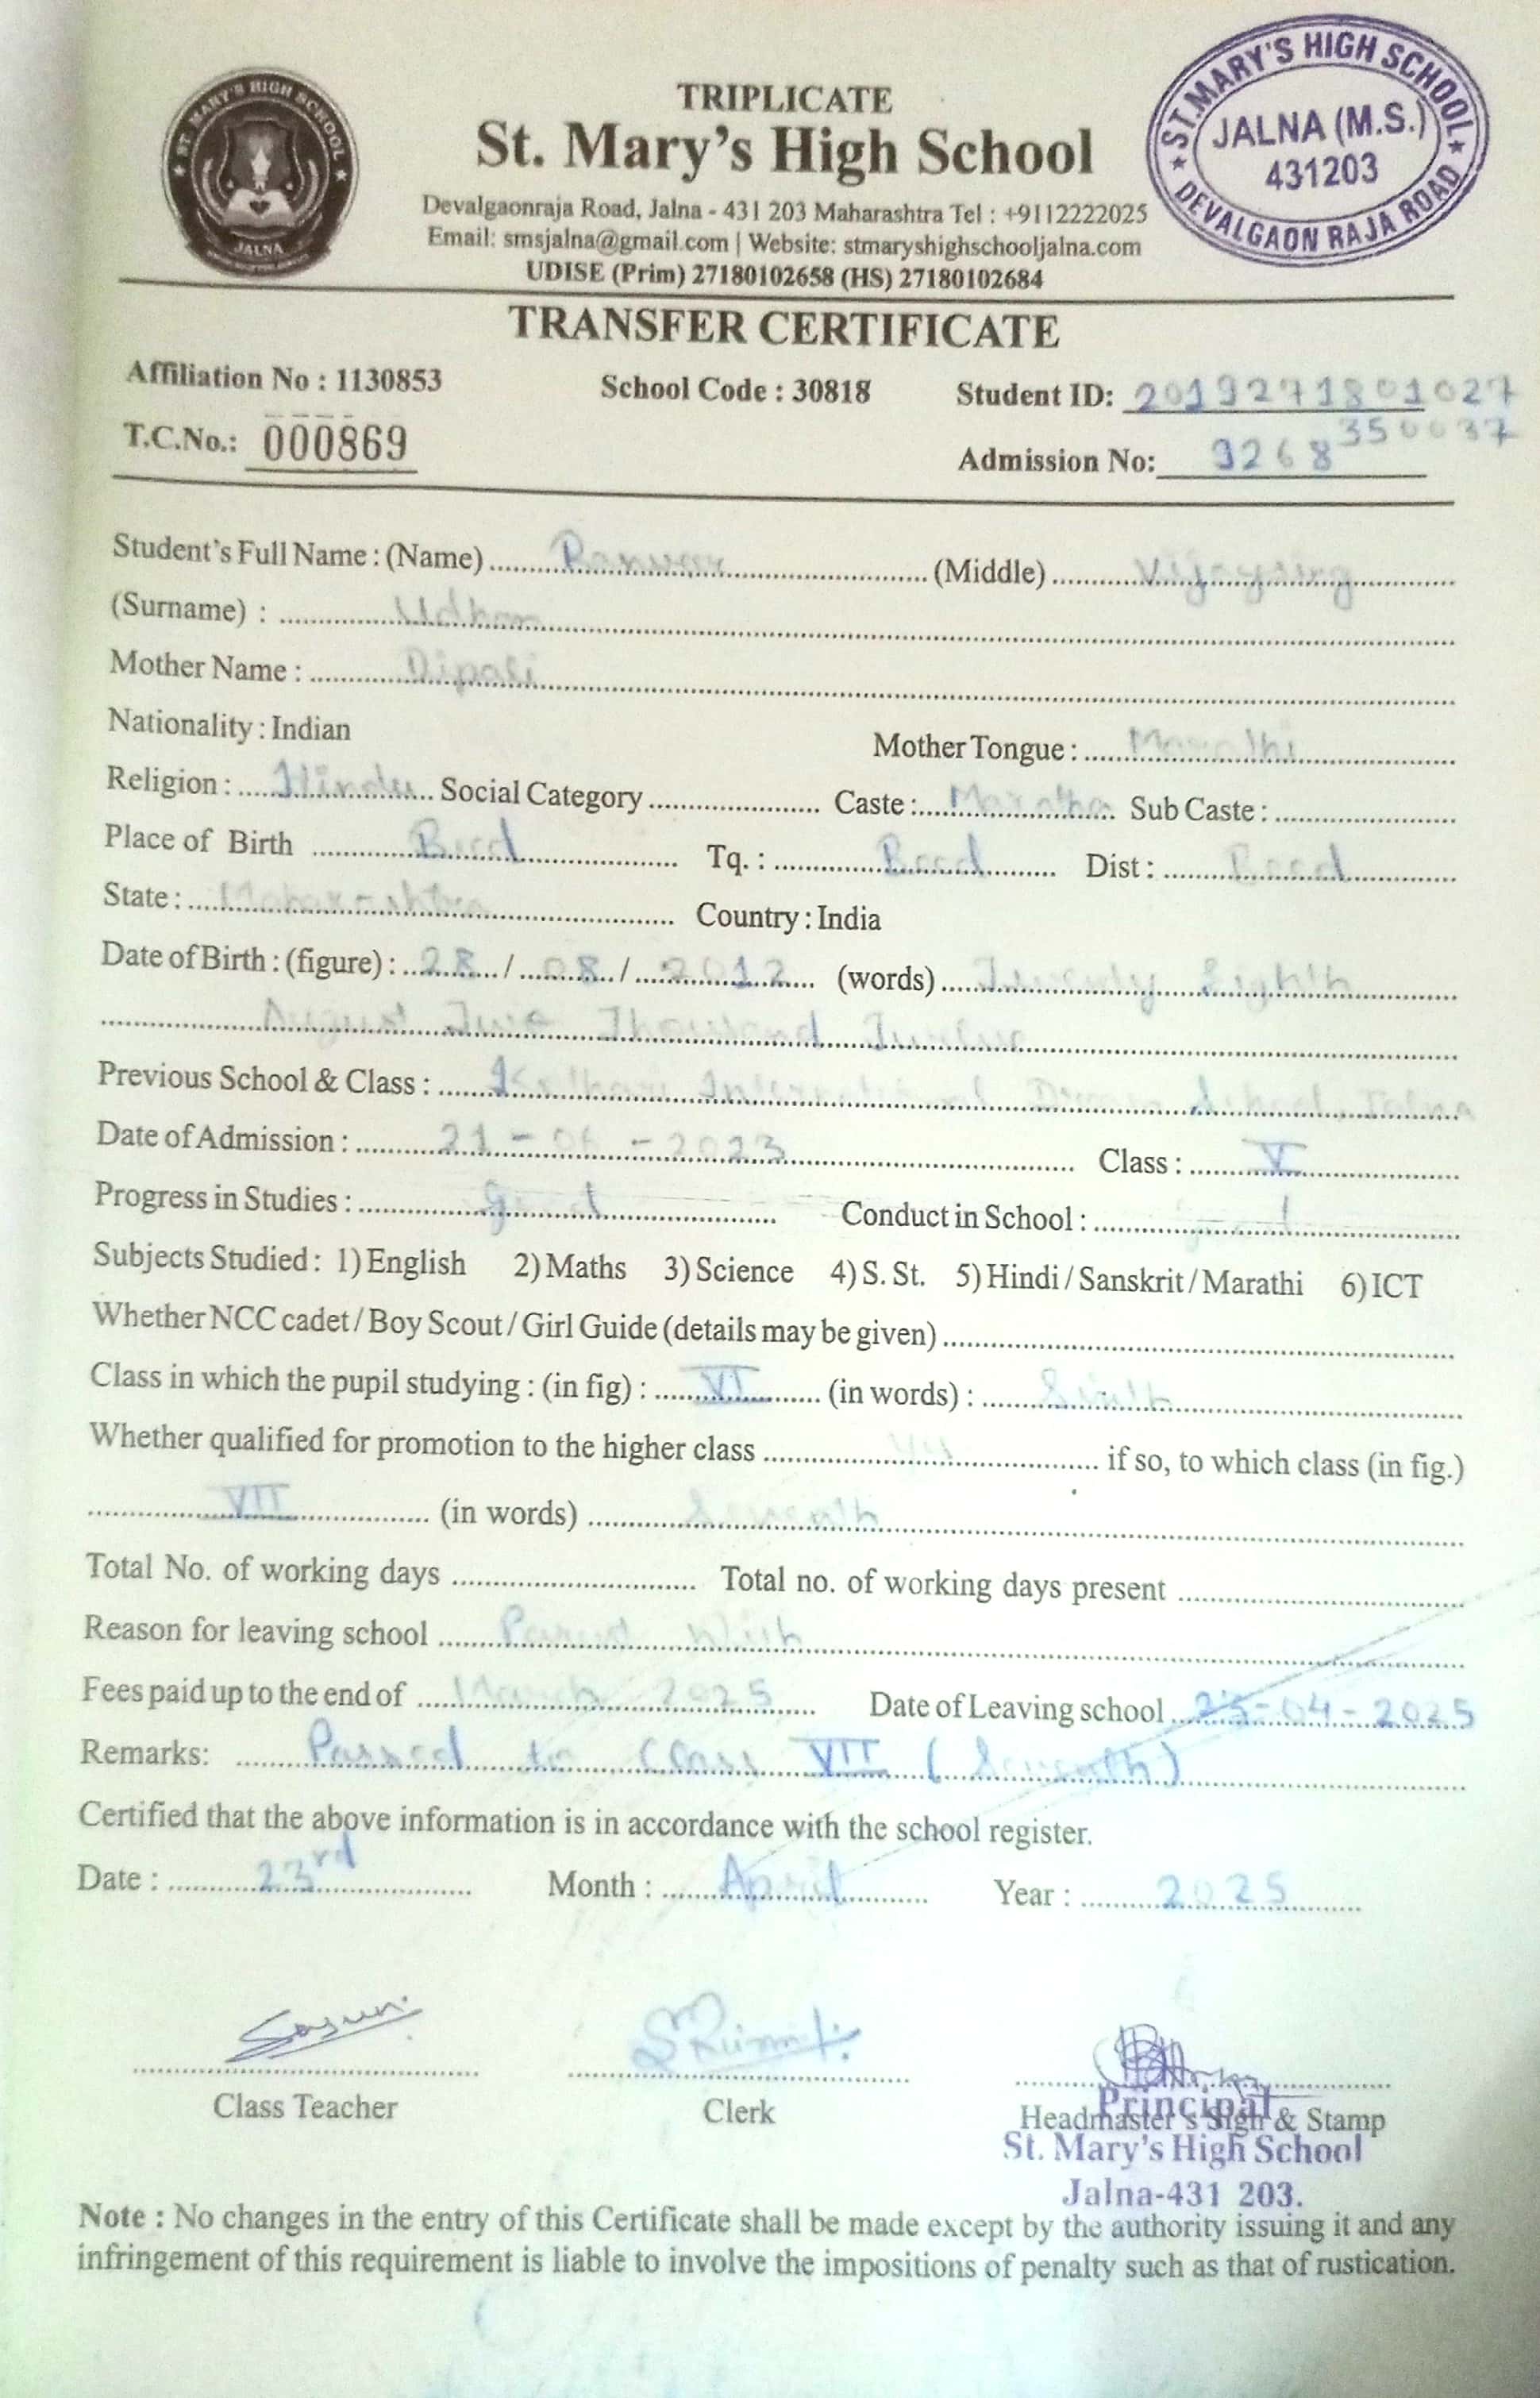 ST. MARY'S HIGH SCHOOL
JALNA
TRIPLICATE
St. Mary's High School
Devalgaonraja Road, Jalna - 431 203 Maharashtra Tel : +9112222025
Email: smsjalna@gmail.com | Website: stmaryshighschooljalna.com
UDISE (Prim) 27180102658 (HS) 27180102684
ST.MARY'S HIGH SCHOOL
JALNA (M.S.)
431203
DEVALGAON RAJA ROAD
TRANSFER CERTIFICATE
Affiliation No : 1130853 School Code : 30818 Student ID: 2019271801027
350037
T.C.No.: 000869 Admission No: 3268
Student's Full Name : (Name) (Middle) Vijaysing
(Surname) : Udhan
Mother Name : Dipali
Nationality : Indian Mother Tongue : Marathi
Religion : Hindu Social Category Caste : Maratha Sub Caste :
Place of Birth Beed Tq. : Beed Dist : Beed
State : Maharashtra Country : India
Date of Birth : (figure) : 28 / 08 / 2012 (words) Twenty Eighth
August Two Thousand Twelve
Previous School & Class : International School, Jalna
Date of Admission : 21 - 06 - 2023 Class : V
Progress in Studies : good Conduct in School :
Subjects Studied : 1) English 2) Maths 3) Science 4) S. St. 5) Hindi / Sanskrit / Marathi 6) ICT
Whether NCC cadet / Boy Scout / Girl Guide (details may be given)
Class in which the pupil studying : (in fig) : VI (in words) : Sixth
Whether qualified for promotion to the higher class if so, to which class (in fig.)
VII (in words) Seventh
Total No. of working days Total no. of working days present
Reason for leaving school Parent Wish
Fees paid up to the end of March 2025 Date of Leaving school 23-04-2025
Remarks: Passed to Class VII (Seventh)
Certified that the above information is in accordance with the school register.
Date : 23rd Month : April Year : 2025
Class Teacher Clerk Headmaster's Sign & Stamp
Principal
St. Mary's High School
Jalna-431 203.
Note : No changes in the entry of this Certificate shall be made except by the authority issuing it and any
infringement of this requirement is liable to involve the impositions of penalty such as that of rustication.